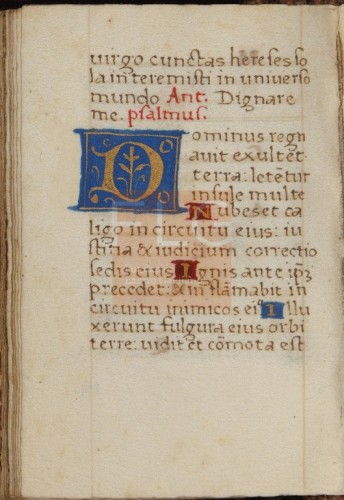 uirgo cunctas hereses so
la interemisti in uniuerso
mundo Ant. Dignare
me. psalmus.
Dominus regn
auit exultēt
terra: letētur
insule multe
Nubes et ca
ligo in circuitu eius: iu
stitia & iudicium correctio
sedis eius Ignis ante ip̄ȝ
precedet: & inflāmabit in
circuitu inimicos eiꝰ Illu
xerunt fulgura eius orbi
terre: uidit et cōmota est